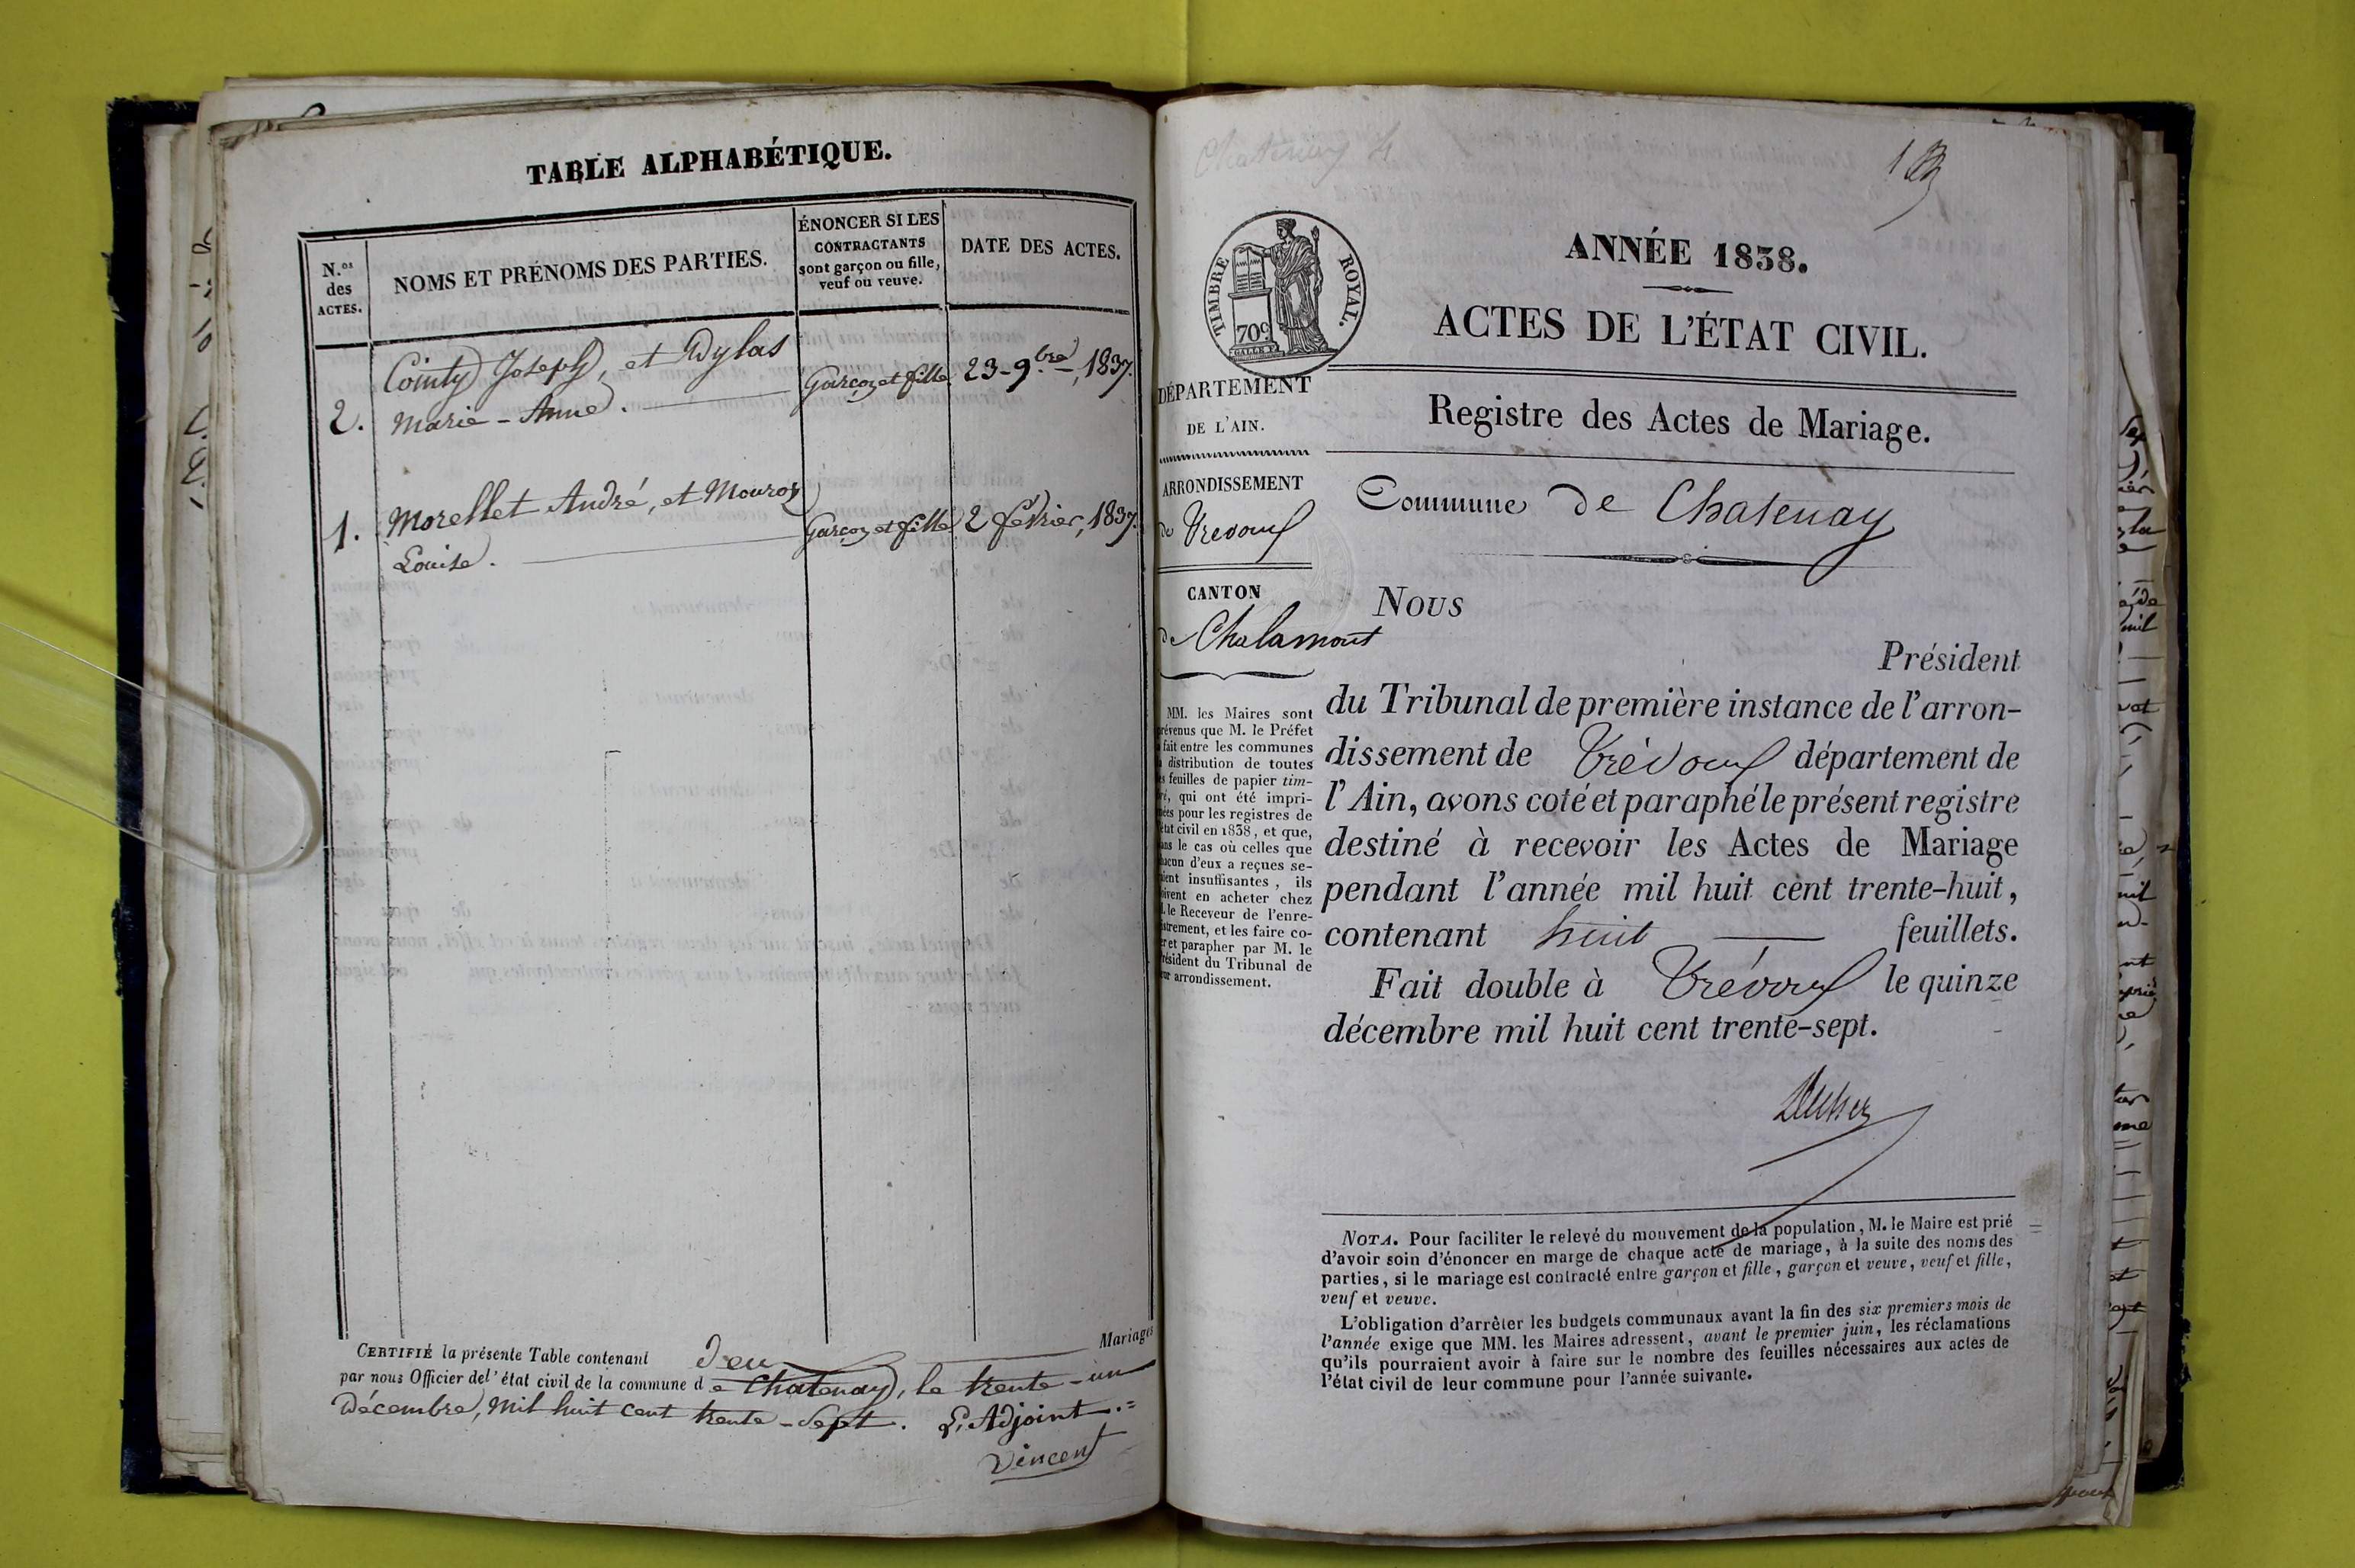 TABLE ALPHABÉTIQUE.
N.os des ACTES.
NOMS ET PRÉNOMS DES PARTIES.
ÉNONCER SI LES
CONTRACTANTS
sont garçon ou fille,
veuf ou veuve.
DATE DES ACTES.
Cointy Joseph, et Dylas
2. Marie-Anne. Garçon et fille 23-9.bre, 1837.
Morellet André, et Mouroz
1. Louise. Garçon et fille 2 février, 1837.
Mariages
CERTIFIÉ la présente Table contenant deux
par nous Officier del'état civil de la commune de Chatenay, le trente-un
Décembre, mil huit cent trente-sept. L'Adjoint.=
Vincent
Chatenay
TIMBRE ROYAL.
70c
ANNÉE 1838.
ACTES DE L'ÉTAT CIVIL.
DÉPARTEMENT
DE L'AIN.
ARRONDISSEMENT
de Trevoux
CANTON
de Chalamont
MM. les Maires sont
prévenus que M. le Préfet
a fait entre les communes
la distribution de toutes
les feuilles de papier tim-
bré, qui ont été impri-
mées pour les registres de
l'état civil en 1838, et que,
dans le cas où celles que
chacun d'eux a reçues se-
raient insuffisantes, ils
doivent en acheter chez
M. le Receveur de l'enre-
gistrement, et les faire co-
ter et parapher par M. le
Président du Tribunal de
leur arrondissement.
Registre des Actes de Mariage.
Commune de Chatenay
Nous
Président
du Tribunal de première instance de l'arron-
dissement de Trévoux département de
l'Ain, avons coté et paraphé le présent registre
destiné à recevoir les Actes de Mariage
pendant l'année mil huit cent trente-huit,
contenant huit feuillets.
Fait double à Trévoux le quinze
décembre mil huit cent trente-sept.
NOTA. Pour faciliter le relevé du mouvement de la population, M. le Maire est prié
d'avoir soin d'énoncer en marge de chaque acte de mariage, à la suite des noms des
parties, si le mariage est contracté entre garçon et fille, garçon et veuve, veuf et fille,
veuf et veuve.
L'obligation d'arrêter les budgets communaux avant la fin des six premiers mois de
l'année exige que MM. les Maires adressent, avant le premier juin, les réclamations
qu'ils pourraient avoir à faire sur le nombre des feuilles nécessaires aux actes de
l'état civil de leur commune pour l'année suivante.